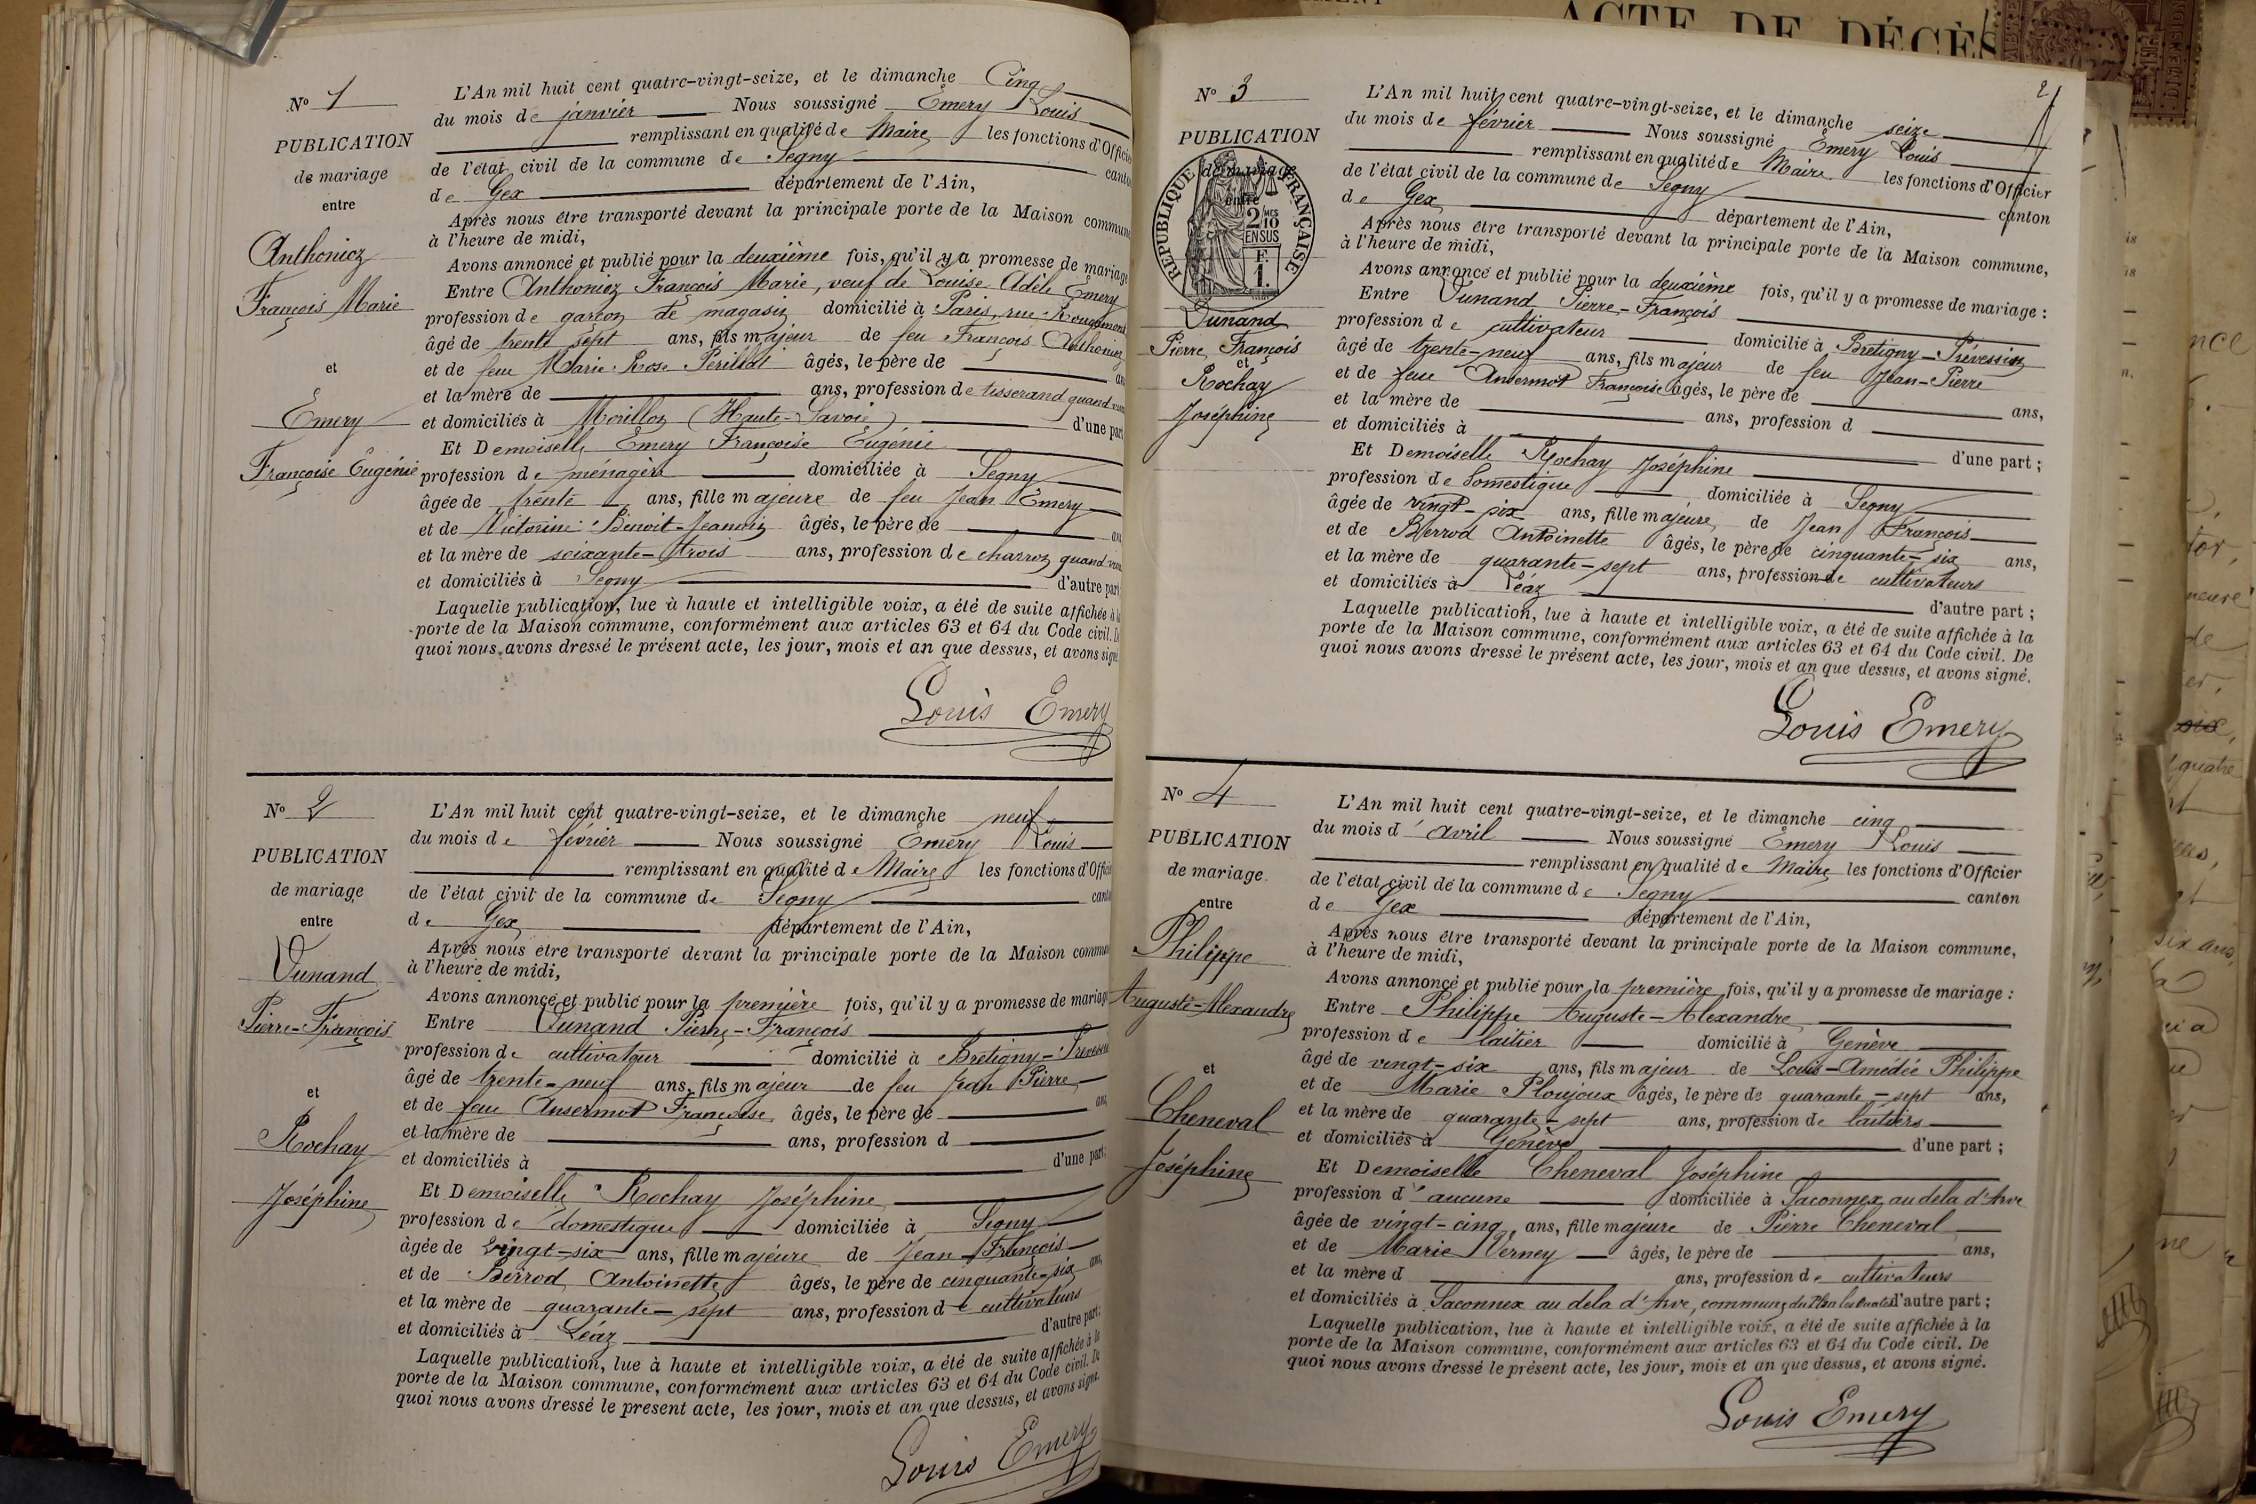 ACTE DE DÉCÈS
Nº 1
PUBLICATION
de mariage
entre
Anthonioz
François Marie
et
Emery
Françoise Eugénie
L'An mil huit cent quatre-vingt-seize, et le dimanche Cinq
du mois de janvier Nous soussigné Emery Louis
remplissant en qualité de Maire les fonctions d'Officier
de l'état civil de la commune de Segny canton
de Gex département de l'Ain,
Après nous être transporté devant la principale porte de la Maison commune
à l'heure de midi,
Avons annoncé et publié pour la deuxième fois, qu'il y a promesse de mariage
Entre Anthonioz François Marie, veuf de Louise Adèle Emery
profession de garçon de magasin domicilié à Paris, rue Rougemont
âgé de trente sept ans, fils majeur de feu François Anthonioz
et de feue Marie Rose âgés, le père de
et la mère de ans, profession de tisserand quand
et domiciliés à Morillon (Haute-Savoie) d'une part
Et Demoiselle Emery Françoise Eugénie
profession de ménagère domiciliée à Segny
âgée de trente ans, fille majeure de feu Jean Emery
et de Victorine Benoit-Jeannin âgés, le père de
et la mère de soixante-trois ans, profession de charron quand
et domiciliés à Segny d'autre part
Laquelle publication, lue à haute et intelligible voix, a été de suite affichée à la
porte de la Maison commune, conformément aux articles 63 et 64 du Code civil. De
quoi nous avons dressé le présent acte, les jour, mois et an que dessus, et avons signé
Louis Emery
Nº 2
PUBLICATION
de mariage
entre
Dunand
Pierre-François
et
Rochay
Joséphine
L'An mil huit cent quatre-vingt-seize, et le dimanche neuf
du mois de février Nous soussigné Emery Louis
remplissant en qualité de Maire les fonctions d'Officier
de l'état civil de la commune de Segny canton
de Gex département de l'Ain,
Après nous être transporté devant la principale porte de la Maison commune
à l'heure de midi,
Avons annoncé et publié pour la première fois, qu'il y a promesse de mariage
Entre Dunand Pierre-François
profession de cultivateur domicilié à Bretigny-Prévessin
âgé de trente-neuf ans, fils majeur de feu Jean Pierre
et de feue Ansermot Françoise âgés, le père de ans,
et la mère de ans, profession d
et domiciliés à d'une part;
Et Demoiselle Rochay Joséphine
profession de domestique domiciliée à Segny
âgée de vingt-six ans, fille majeure de Jean-François
et de Berrod Antoinette âgés, le père de cinquante-six ans,
et la mère de quarante-sept ans, profession de cultivateurs
et domiciliés à Léaz d'autre part;
Laquelle publication, lue à haute et intelligible voix, a été de suite affichée à la
porte de la Maison commune, conformément aux articles 63 et 64 du Code civil. De
quoi nous avons dressé le présent acte, les jour, mois et an que dessus, et avons signé.
Louis Emery
2
Nº 3
PUBLICATION
de mariage
entre
RÉPUBLIQUE FRANÇAISE
2/10 MES
EN SUS
F.
1.
Dunand
Pierre François
et
Rochay
Joséphine
L'An mil huit cent quatre-vingt-seize, et le dimanche seize
du mois de février Nous soussigné Emery Louis
remplissant en qualité de Maire les fonctions d'Officier
de l'état civil de la commune de Segny canton
de Gex département de l'Ain,
Après nous être transporté devant la principale porte de la Maison commune,
à l'heure de midi,
Avons annoncé et publié pour la deuxième fois, qu'il y a promesse de mariage :
Entre Dunand Pierre-François
profession de cultivateur domicilié à Bretigny-Prévessin
âgé de trente-neuf ans, fils majeur de feu Jean-Pierre
et de feue Ansermot Françoise âgés, le père de ans,
et la mère de ans, profession d
et domiciliés à d'une part ;
Et Demoiselle Rochay Joséphine
profession de Domestique domiciliée à Segny
âgée de vingt-six ans, fille majeure de Jean François
et de Berrod Antoinette âgés, le père de cinquante-six ans,
et la mère de quarante-sept ans, profession de cultivateurs
et domiciliés à Léaz d'autre part ;
Laquelle publication, lue à haute et intelligible voix, a été de suite affichée à la
porte de la Maison commune, conformément aux articles 63 et 64 du Code civil. De
quoi nous avons dressé le présent acte, les jour, mois et an que dessus, et avons signé.
Louis Emery
Nº 4
PUBLICATION
de mariage
entre
Philippe
Auguste-Alexandre
et
Cheneval
Joséphine
L'An mil huit cent quatre-vingt-seize, et le dimanche cinq
du mois d'avril Nous soussigné Emery Louis
remplissant en qualité de Maire les fonctions d'Officier
de l'état civil de la commune de Segny canton
de Gex département de l'Ain,
Après nous être transporté devant la principale porte de la Maison commune,
à l'heure de midi,
Avons annoncé et publié pour la première fois, qu'il y a promesse de mariage :
Entre Philippe Auguste-Alexandre
profession de laitier domicilié à Genève
âgé de vingt-six ans, fils majeur de Louis-Amédée Philippe
et de Marie Ploujoux âgés, le père de quarante-sept ans,
et la mère de quarante-sept ans, profession de laitiers
et domiciliés à Genève d'une part ;
Et Demoiselle Cheneval Joséphine
profession d'aucune domiciliée à Saconnex au dela d'Arve
âgée de vingt-cinq ans, fille majeure de Pierre Cheneval
et de Marie Verney âgés, le père de ans,
et la mère d ans, profession de cultivateurs
et domiciliés à Saconnex au dela d'Arve, commune du Plan les Ouates d'autre part ;
Laquelle publication, lue à haute et intelligible voix, a été de suite affichée à la
porte de la Maison commune, conformément aux articles 63 et 64 du Code civil. De
quoi nous avons dressé le présent acte, les jour, mois et an que dessus, et avons signé.
Louis Emery